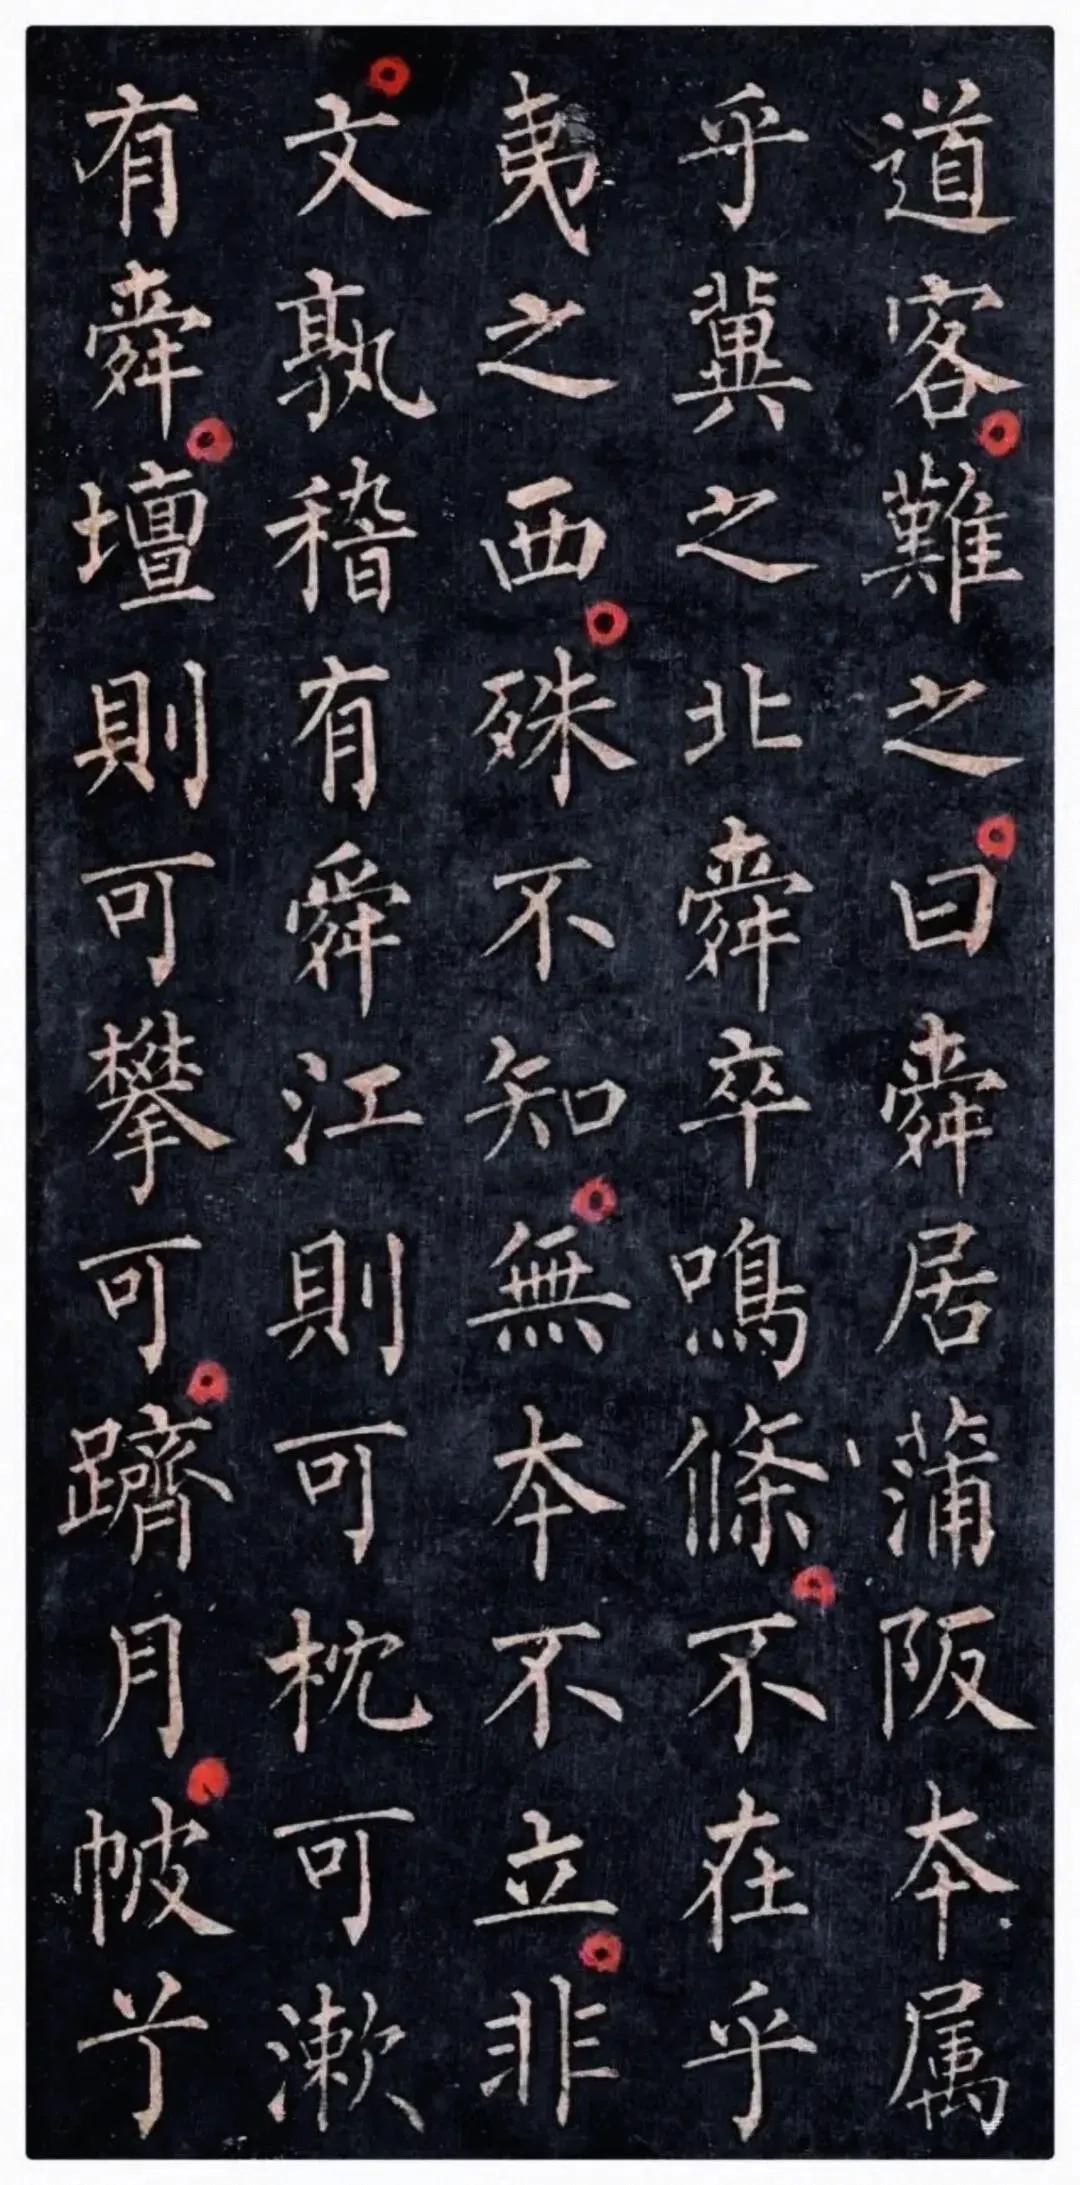 道客難之曰舜居蒲阪本属
乎冀之北舜卒鳴條不在乎
夷之西殊不知無本不立非
文孰稽有舜江則可枕可漱
有舜壇則可攀可躋月帔兮